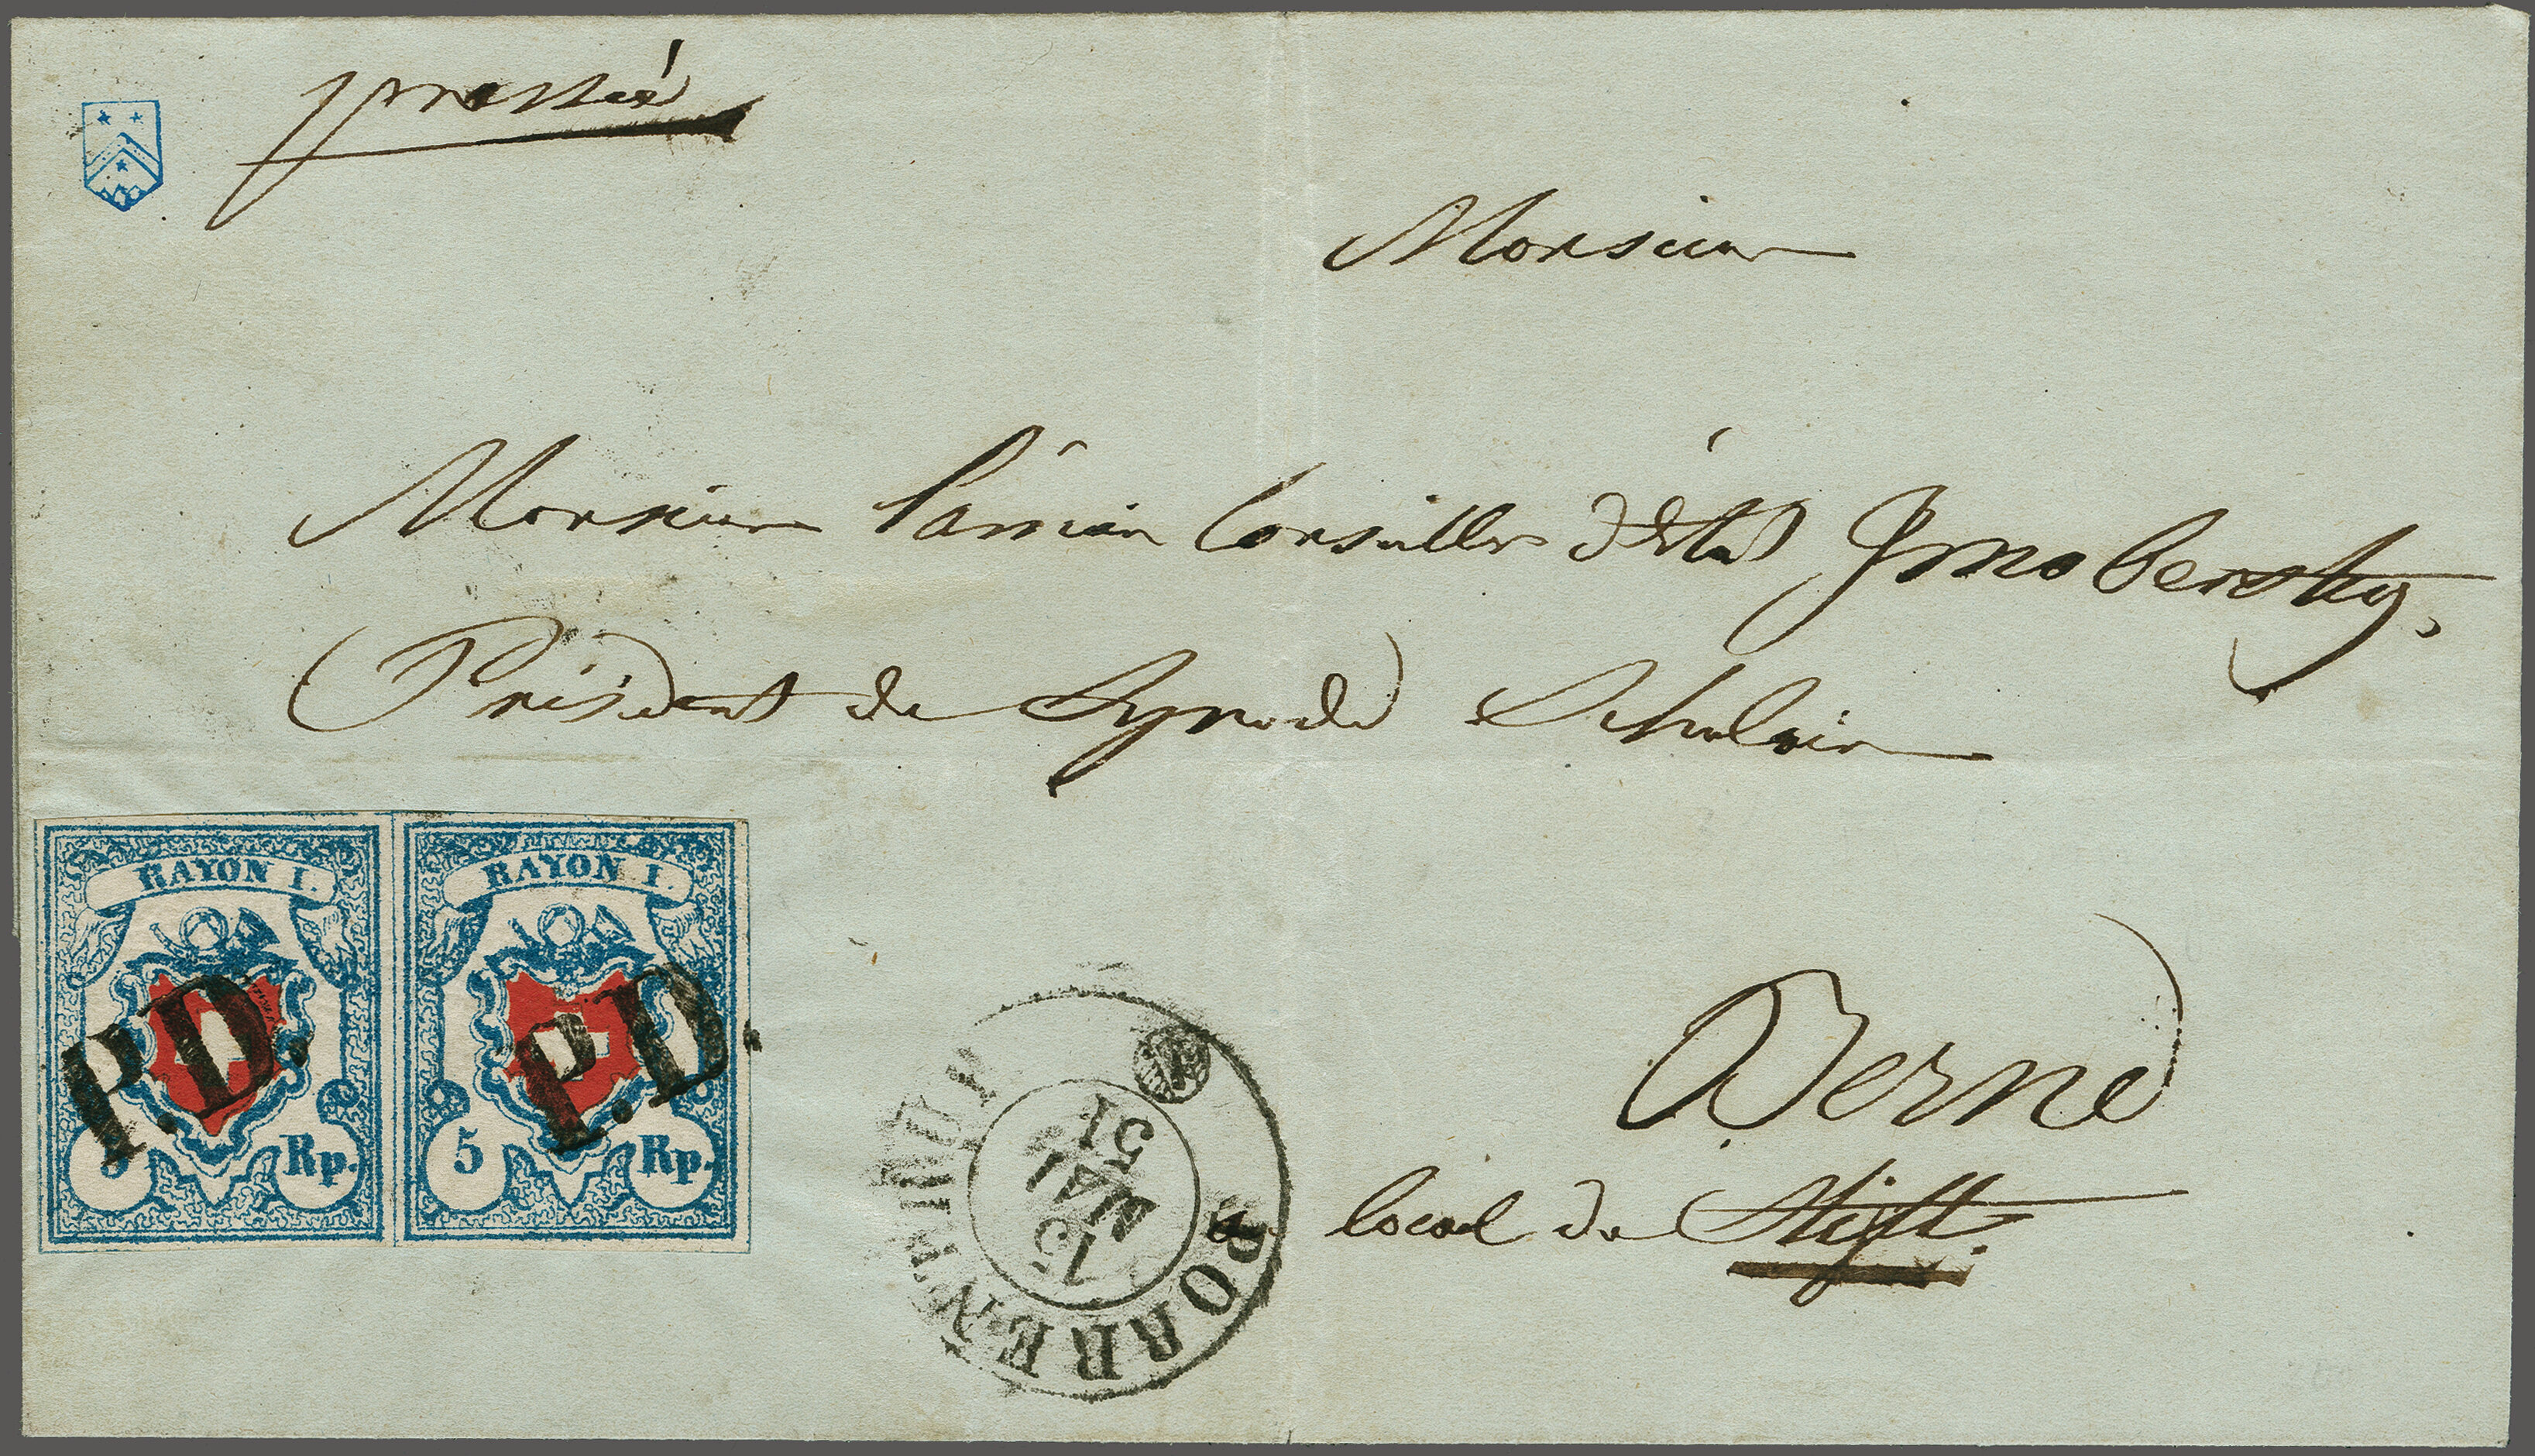 pressée
Monsieur
Monsieur l'ancien Conseiller d'état Imobersteg,
Président du Synode Scholaire
Berne
local du Stift.
RAYON I.
P.D.
5 Rp.
RAYON I.
P.D.
5 Rp.
PORRENTRUY
15
MAI
51